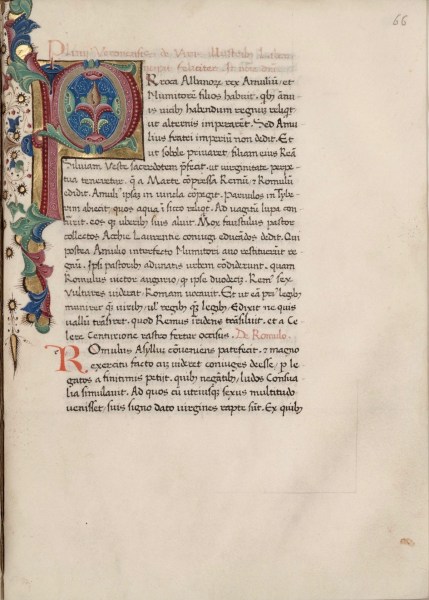 66
Plinii Veronensis de Viris illustribus
PRoca Albanoꝝ rex Amuliū et
Numitorē filios habuit. qb᷒ ānu
is vicib᷒ habendum regnū reliqt
ut alternis imperarēt. Sed Amu
lius fratri imperiū non dedit. Et
ut sobole privaret filiam eius Reā
Silviam Veste sacerdotem p̄fecit. ut virginitate perpe
tua teneretur. q̄ a Marte cōpressa Remū ⁊ Romulū
edidit. Amuliꝰ ipsaꝫ in vincla cōpegit. Parvulos in Tybe
rim abiecit. quos aqua ī sicco reliqt. Ad vagitū lupa con
currit. eos q; uberibꝰ suis aluit. Mox faustulus pastor
collectos Accie Laurentie coniugi educādos dedit. Qui
postea Amulio interfecto Numitori avo restituerūt re
gnū. Ipsi pastoribꝰ adunatis urbem cōdiderunt. quam
Romulus victor augurio, q ipse duodecī. Remꝰ sex
Vultures viderat. Romam vocavit. Et ut eā priꝰ legibꝰ
muniret q̄ viribꝰ
vallū trāsiret. quod Remus irridens trāsiluit. et a Ce
lere Centurione rastro fertur occisus. De Romulo.
ROmulus Asyllū cōveniens patefecit. ⁊ magno
exercitu facto cū videret coniuges deesse, p le
gatos a finitimis petiit. quibꝰ negātibꝰ, ludos Consua
lia simulavit. Ad quos cū utriusqꝫ sexus multitudo
venisset. suis signo dato virgines rapte sūt. Ex quibꝰ